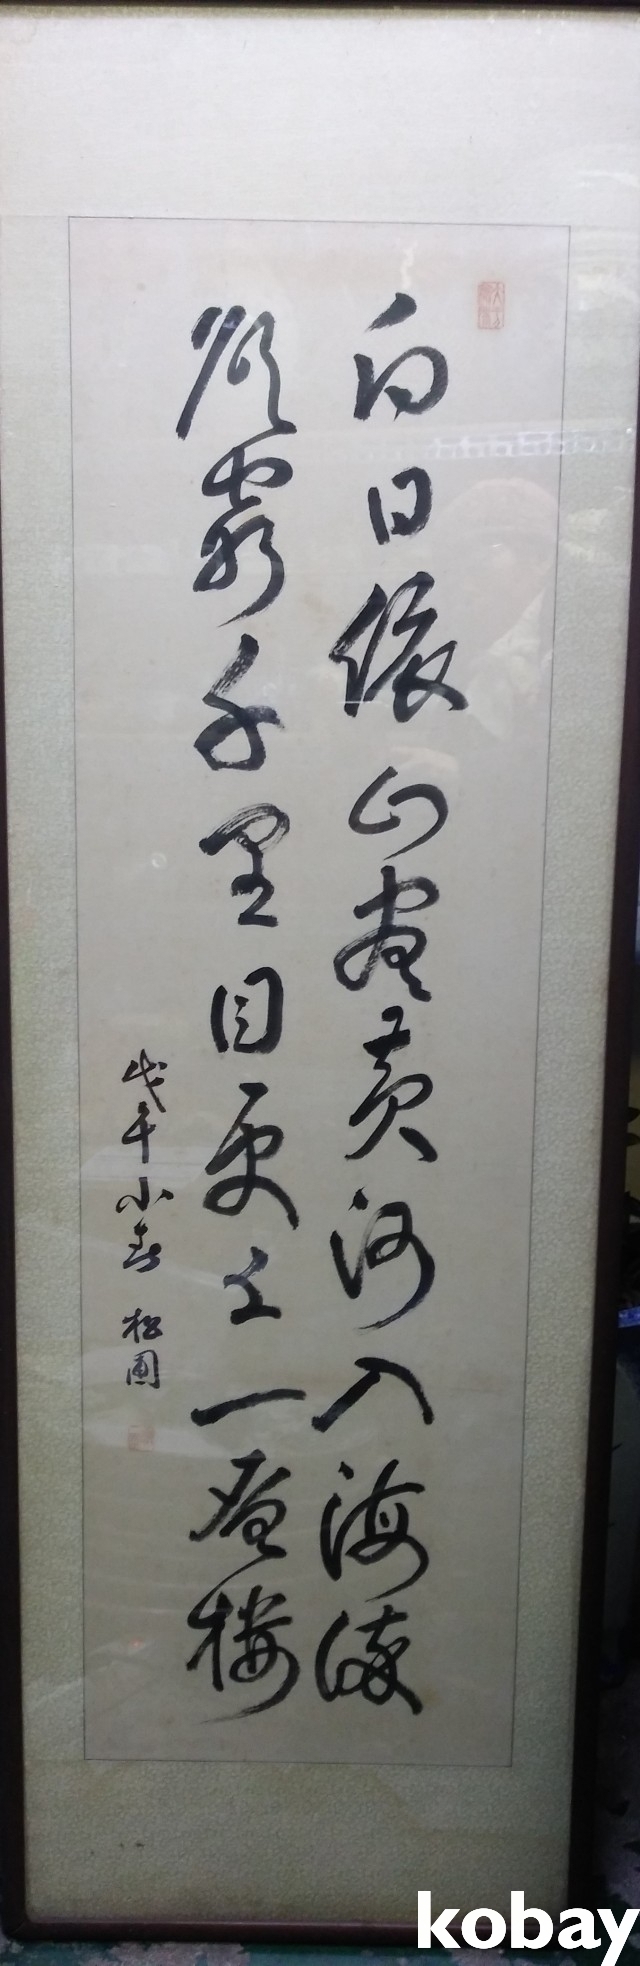 白日依山盡黃河入海流
欲窮千里目更上一層樓
戊午小春 松圃
kobay